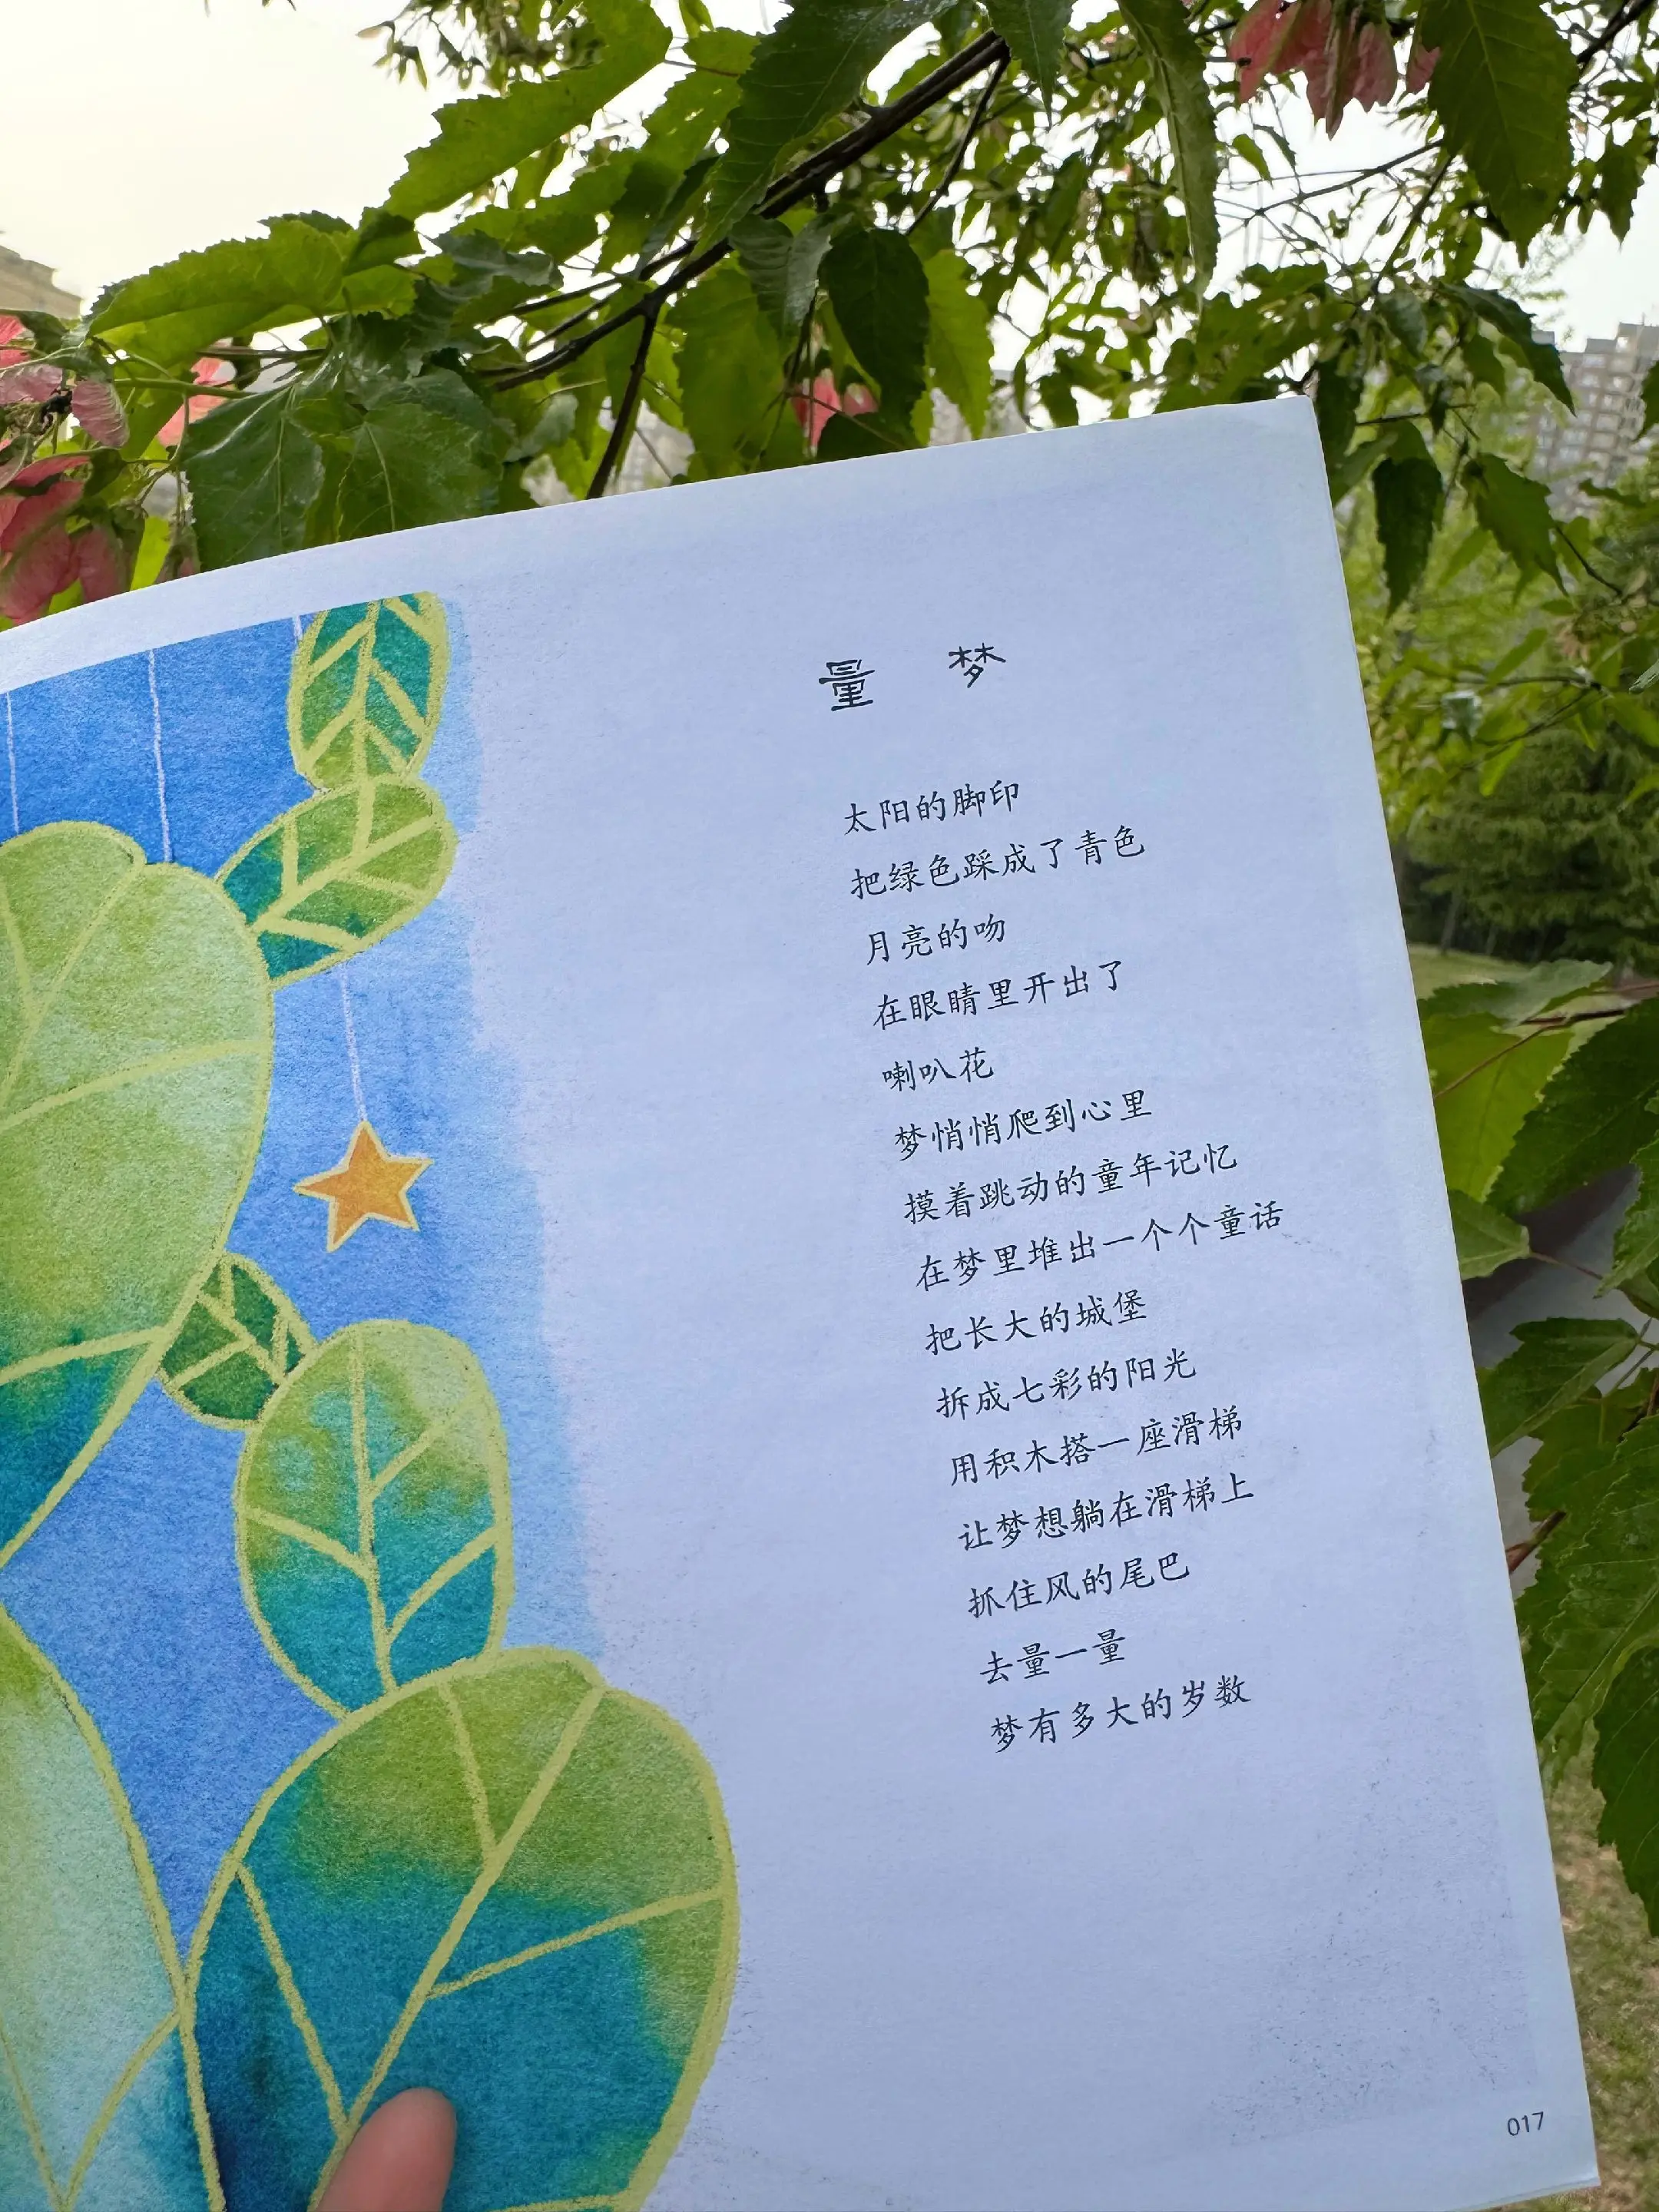 量 梦
太阳的脚印
把绿色踩成了青色
月亮的吻
在眼睛里开出了
喇叭花
梦悄悄爬到心里
摸着跳动的童年记忆
在梦里堆出一个个童话
把长大的城堡
拆成七彩的阳光
用积木搭一座滑梯
让梦想躺在滑梯上
抓住风的尾巴
去量一量
梦有多大的岁数
017